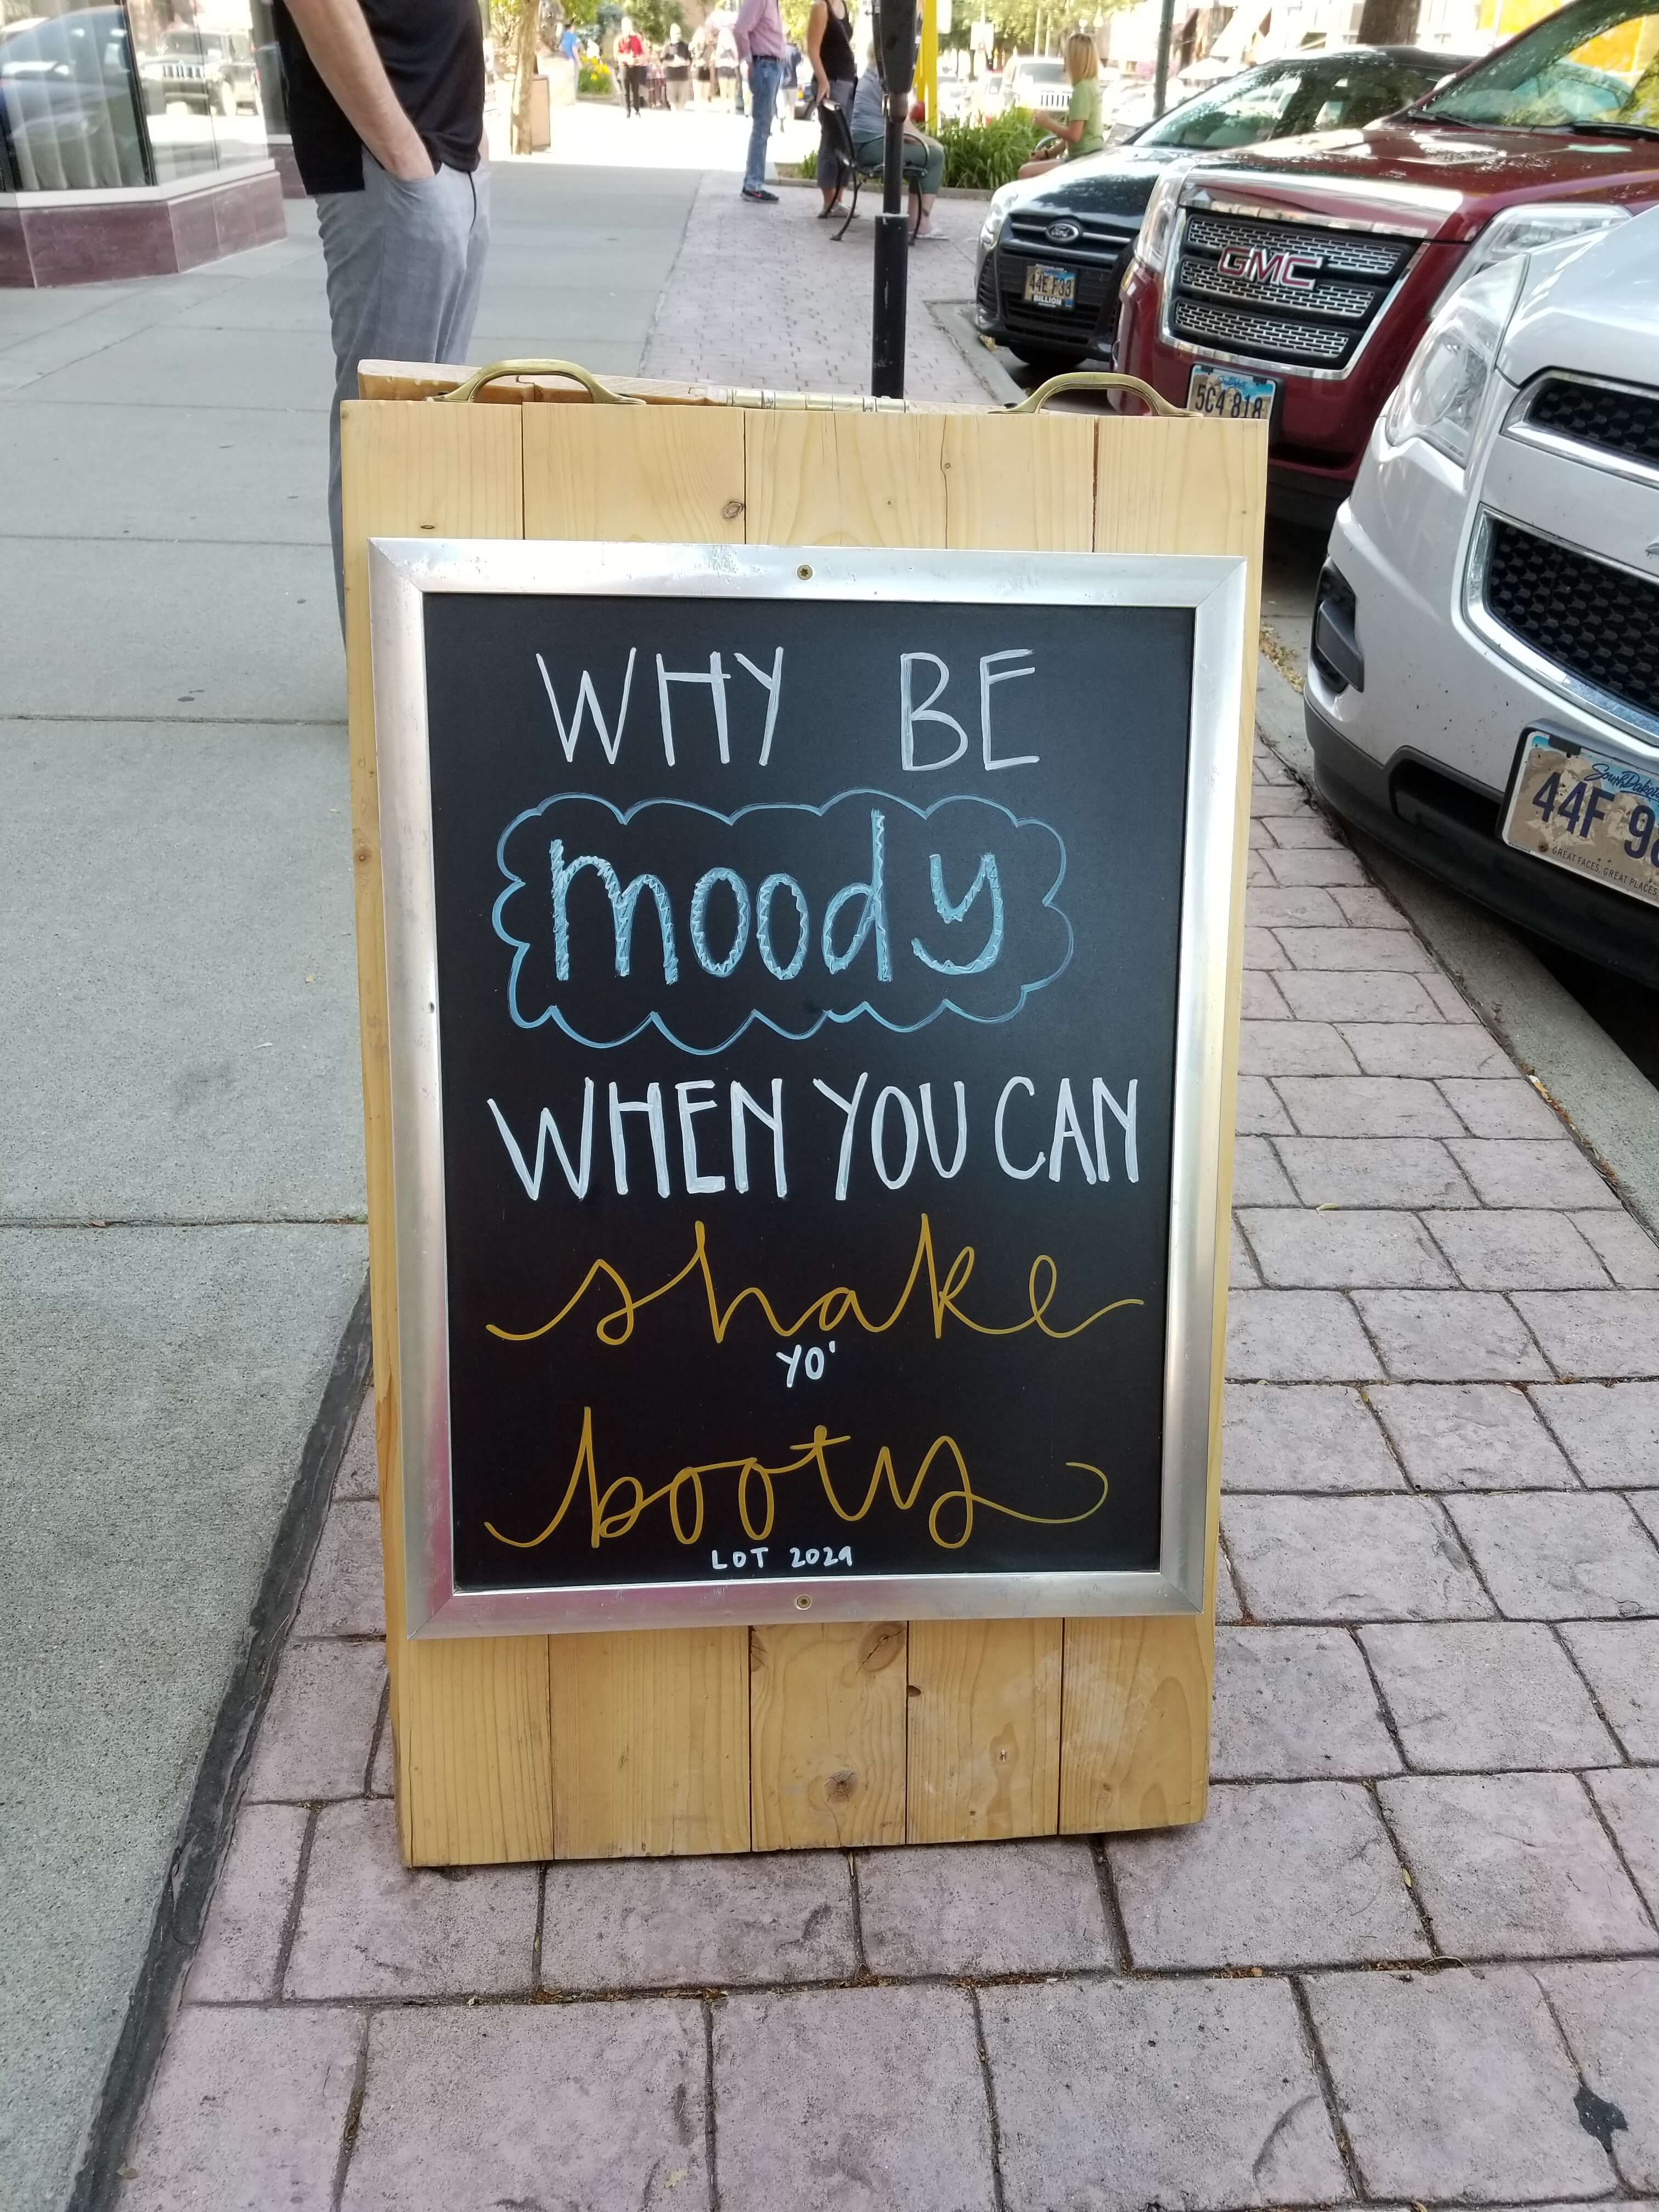 Ford
44E F33
BILLION
GMC
5C4 818
WHY BE
moody
WHEN YOU CAN
shake
YO'
booty
LOT 2029
South Dakota
44F 9
GREAT FACES. GREAT PLACES